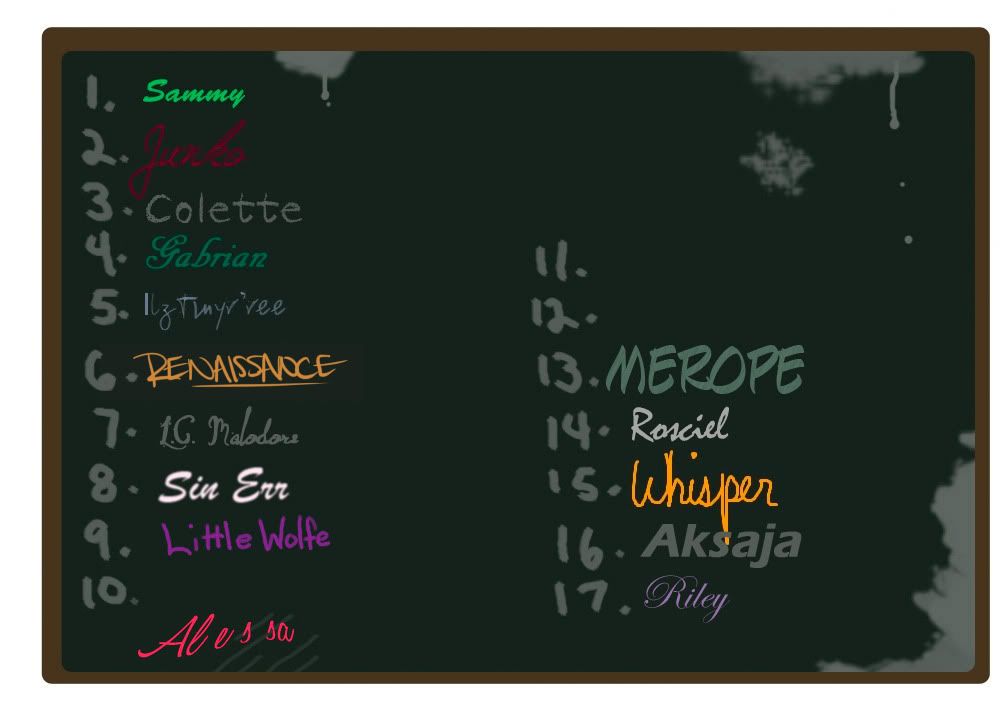 1. Sammy
2. Junko
3. Colette
4. Gabrian
5. Ilztinyr'ree
6. RENAISSANCE
7. L.C. Malodore
8. Sin Err
9. Little Wolfe
10.
Alessa
11.
12.
13. MEROPE
14. Rosciel
15. Whisper
16. Aksaja
17. Riley